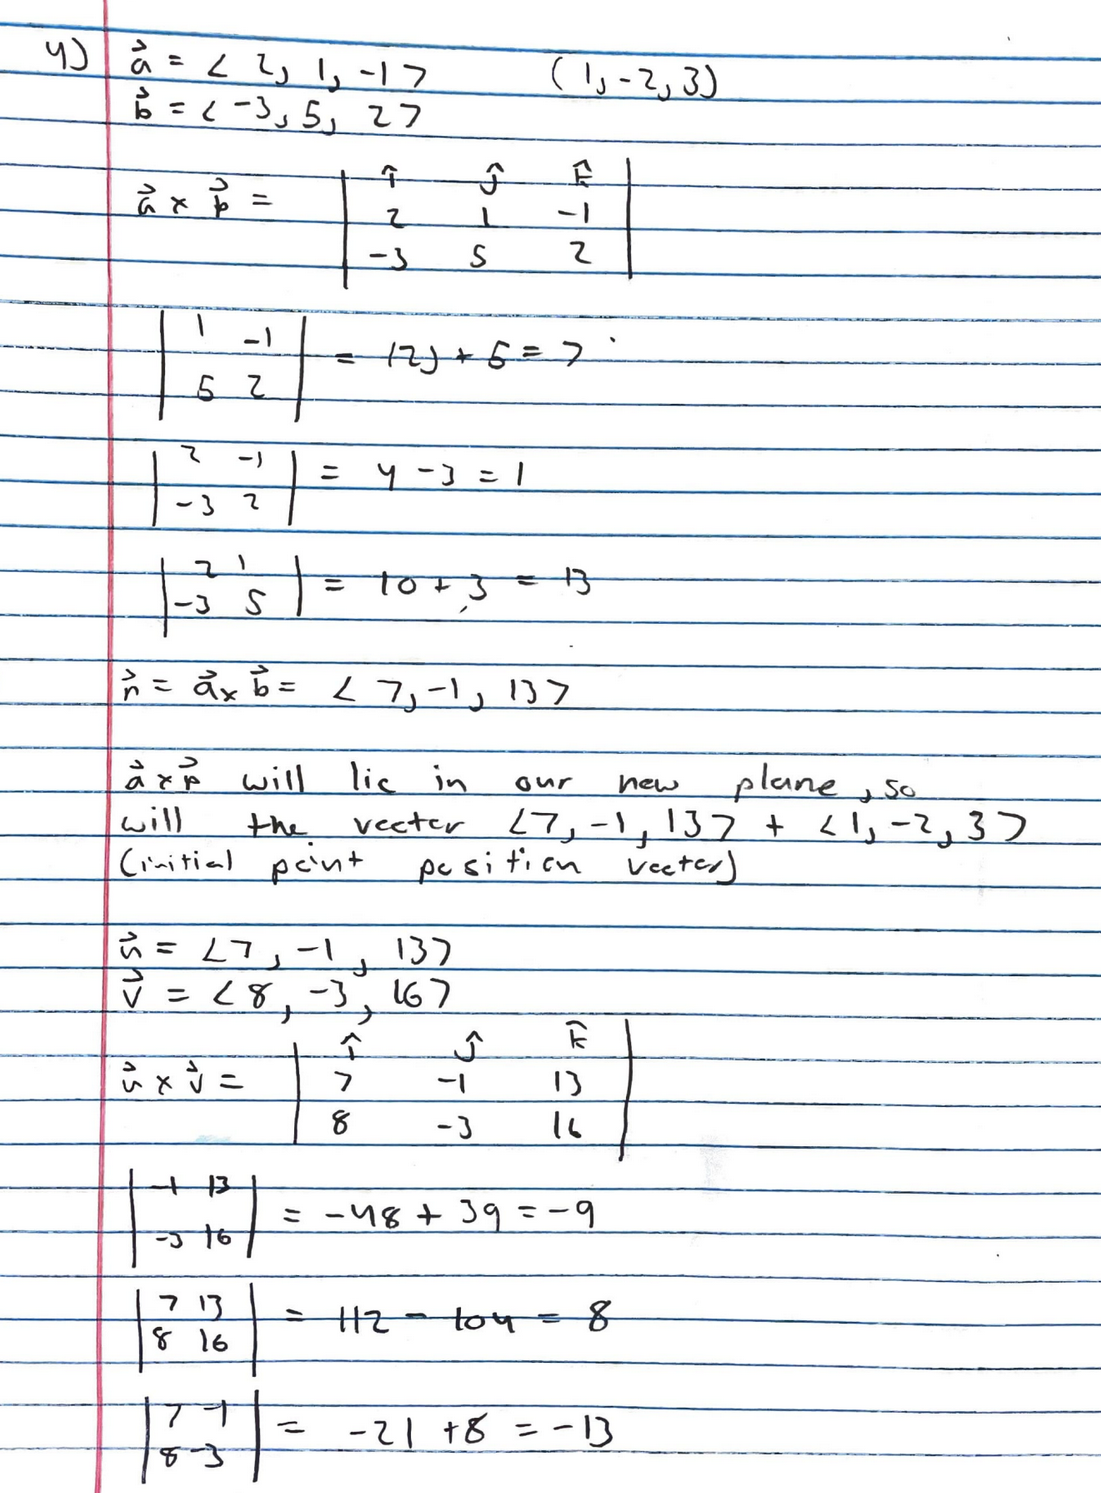 4) a⃗ = < 2, 1, -1 > (1, -2, 3)
b⃗ = < -3, 5, 2 >
a⃗ × b⃗ = | î ĵ k̂ |
| 2 1 -1 |
| -3 5 2 |
| 1 -1 |
| 5 2 | = (2) + 5 = 7
| 2 -1 |
| -3 2 | = 4 - 3 = 1
| 2 1 |
| -3 5 | = 10 + 3 = 13
n⃗ = a⃗ × b⃗ = < 7, -1, 13 >
a⃗ × b⃗ will lie in our new plane, so
will the vector < 7, -1, 13 > + < 1, -2, 3 >
(initial point position vector)
u⃗ = < 7, -1, 13 >
v⃗ = < 8, -3, 16 >
u⃗ × v⃗ = | î ĵ k̂ |
| 7 -1 13 |
| 8 -3 16 |
| -1 13 |
| -3 16 | = -48 + 39 = -9
| 7 13 |
| 8 16 | = 112 - 104 = 8
| 7 -1 |
| 8 -3 | = -21 + 8 = -13